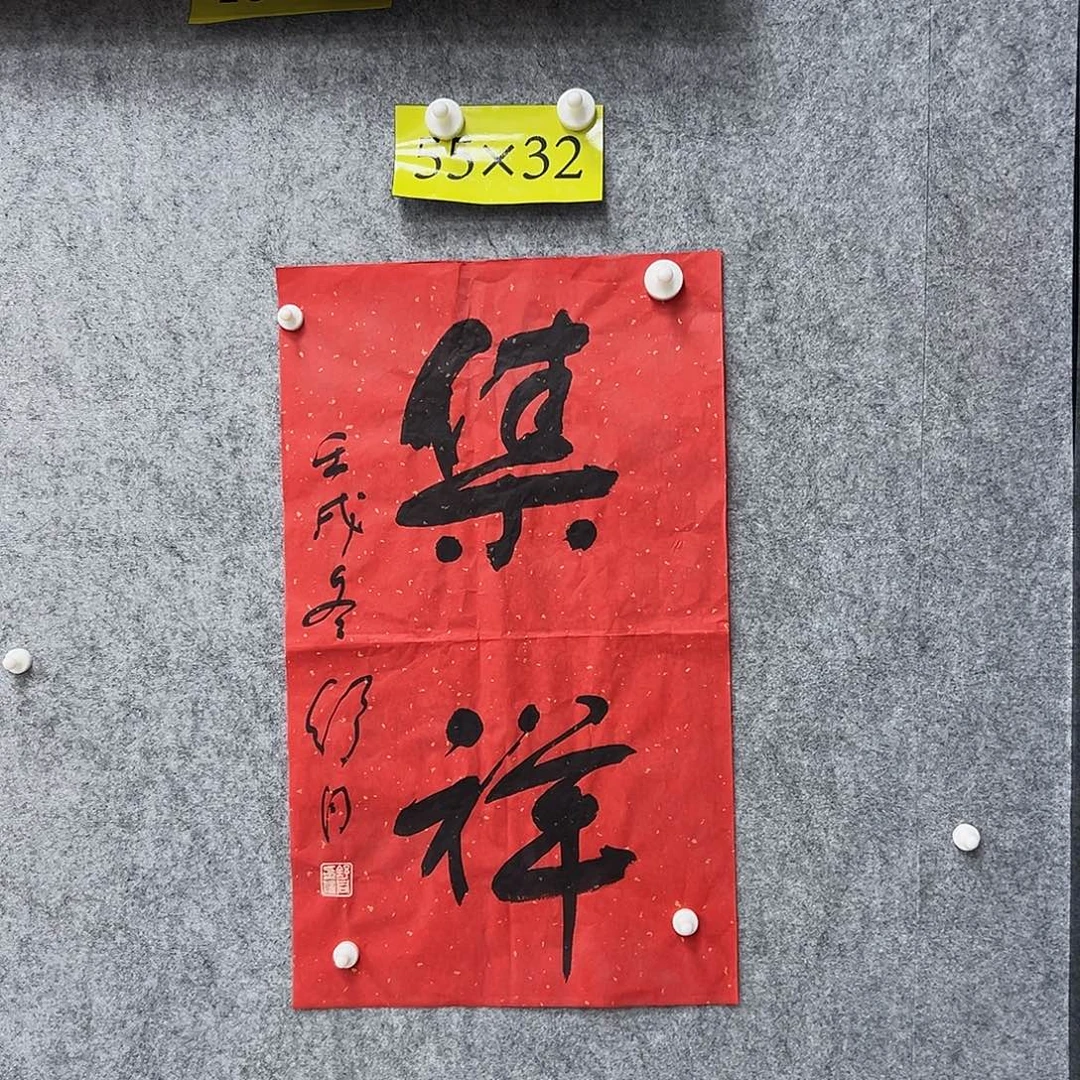 55×32
集祥
壬戌冬